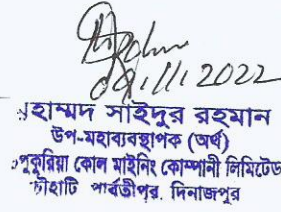 09.11.2022
হাম্মদ সাইদুর রহমান
উপ-মহাব্যবস্থাপক (অর্থ)
পুকুরিয়া কোল মাইনিং কোম্পানী লিমিটেড
চৌহাটি পার্বতীপুর, দিনাজপুর